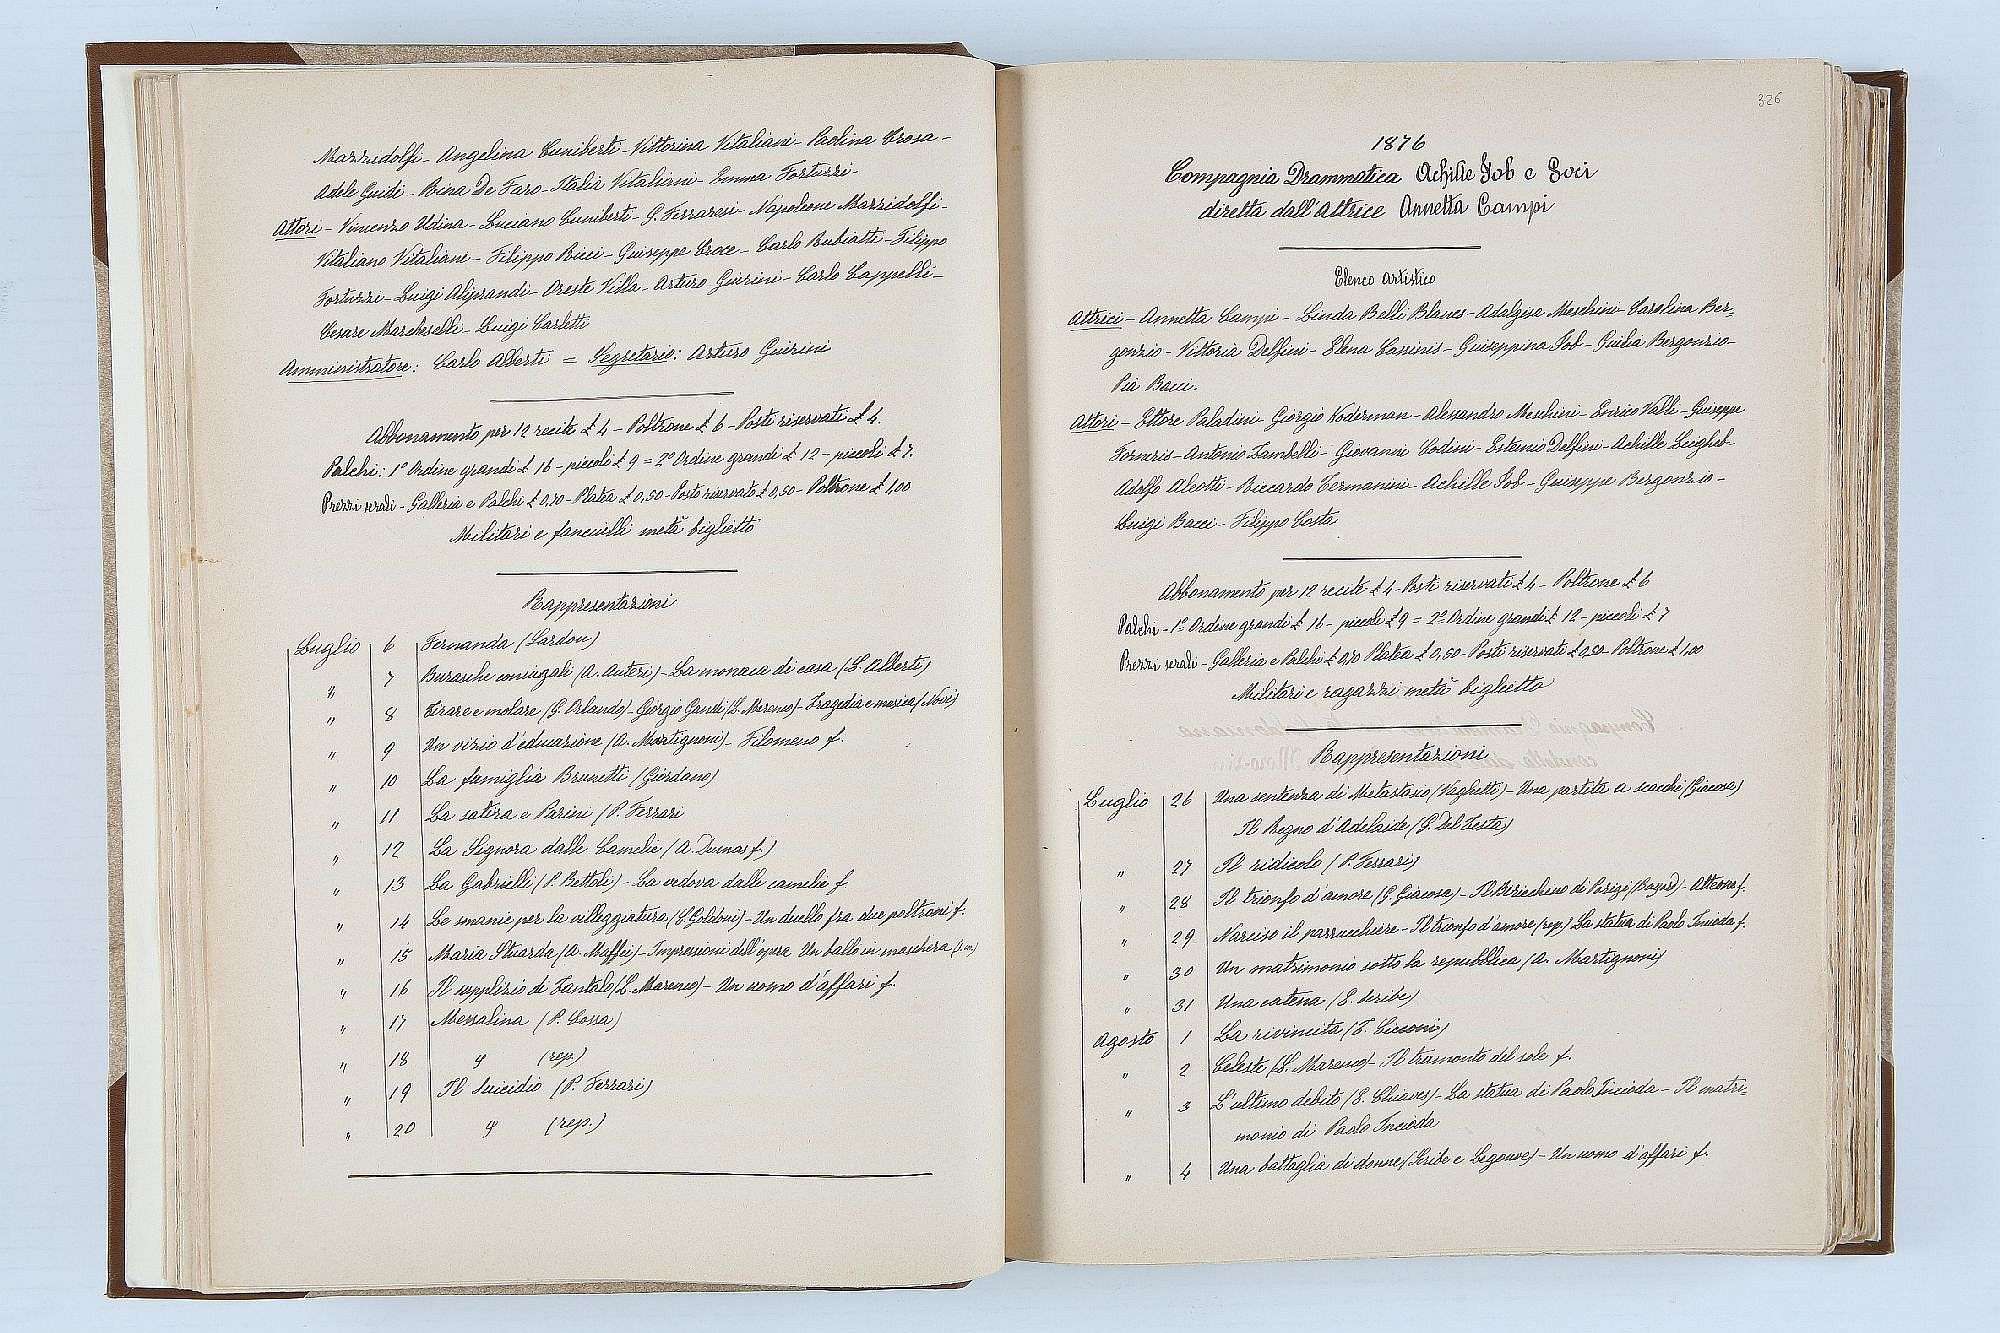 Mazzidolfi - Angelina Cuniberti - Vittorina Vitaliani - Paolina Crosa -
Adele Guidi - Bina De Faro - Italia Vitaliani - Emma Fortuzzi -
Attori - Vincenzo Udina - Luciano Cuniberti - G. Ferraresi - Napoleone Mazzidolfi -
Vitaliano Vitaliani - Filippo Ricci - Guiseppe Croce - Carlo Rubiatti - Filippo
Fortuzzi - Luigi Aliprandi - Oreste Villa - Arturo Guirini - Carlo Cappelli -
Cesare Marcheselli - Luigi Carletti
Amministratore: Carlo Alberti = Segretario: Arturo Guirini
Abbonamento per 12 recite £ 4 - Poltrone £ 6 - Posti riservati £ 4.
Palchi: 1° Ordine grandi £ 16 - piccoli £ 9 = 2° Ordine grandi £ 12 - piccoli £ 7.
Prezzi serali - Galleria e Palchi £ 0,70 - Platea £ 0,50 - Posto riservato £ 0,50 - Poltrone £ 1,00
Militari e fanciulli metà biglietto
Rappresentazioni
Luglio 6 Fernanda (Sardou)
" 7 Burasche coniugali (A. Auteri) - La monaca di casa (L. Alberti)
" 8 Tirare e molare (G. Orlando) - Giorgio Gandi (L. Marenco) - Tragedia e musica (Novi)
" 9 Un vizio d'educazione (A. Martignoni) - Filomeno f.
" 10 La famiglia Brunetti (Giordano)
" 11 La satira e Parini (P. Ferrari
" 12 La Signora dalle Camelie (A. Dumas f.)
" 13 La Gabrielli (P. Bettoli) - La vedova dalle camelie f
" 14 Le smanie per la villeggiatura (C. Goldoni) - Un duello fra due poltroni f.
" 15 Maria Stuarda (A. Maffei) - Impressioni dell'opera Un ballo in maschera
" 16 Il supplizio di Tantalo (L. Marenco) - Un uomo d'affari f.
" 17 Messalina (P. Cossa)
" 18 " (rep.)
" 19 Il Suicidio (P. Ferrari)
" 20 " (rep.)
326
1876
Compagnia Drammatica Achille Job e Soci
diretta dall'Attrice Annetta Campi
Elenco artistico
Attrici - Annetta Campi - Linda Belli Blanes - Adalgisa Meschini - Carolina Ber-
gonzio - Vittoria Delfini - Elena Cassinis - Guiseppina Job - Guilia Bergonzio -
Pia Bacci.
Attori - Ettore Paladini - Giorgio Koderman - Alessandro Meschini - Enrico Valli - Guiseppe
Forneris - Antonio Zambelli - Giovanni Codini - Estemio Delfini - Achille Leigheb
Adolfo Aleotti - Riccardo Termanini - Achille Job - Guiseppe Bergonzio -
Luigi Bacci - Filippo Costa
Abbonamento per 12 recite £ 4 - Posti riservati £ 4 - Poltrone £ 6
Palchi - 1° Ordine grandi £ 16 - piccoli £ 9 = 2° Ordine grandi £ 12 - piccoli £ 7
Prezzi serali - Galleria e Palchi £ 0,70 Platea £ 0,50 - Posti riservati £ 0,50 - Poltrone £ 1,00
Militari e ragazzi metà biglietto
Rappresentazioni
Luglio 26 Una sentenza di Metastasio (Vaghetti) - Una partita a scacchi (Giacosa)
Il Regno d'Adelaide (G. Del Testa)
" 27 Il ridicolo (P. Ferrari)
" 28 Il trionfo d'amore (G. Giacosa) - Il Birichino di Parigi (Bayard) - f.
" 29 Narciso il parrucchiere - Il trionfo d'amore (rep.) La statua di Paolo Incioda f.
" 30 Un matrimonio sotto la repubblica (A. Martignoni)
" 31 Una catena (E. Scribe)
Agosto 1 La rivincita (T. Ciconi)
" 2 Celeste (L. Marenco) - Il tramonto del sole f.
" 3 L'ultimo debito (E. Chiaves) - La statua di Paolo Incioda - Il matri-
monio di Paolo Incioda
" 4 Una battaglia di donne (Scribe e Legouve) - Un uomo d'affari f.